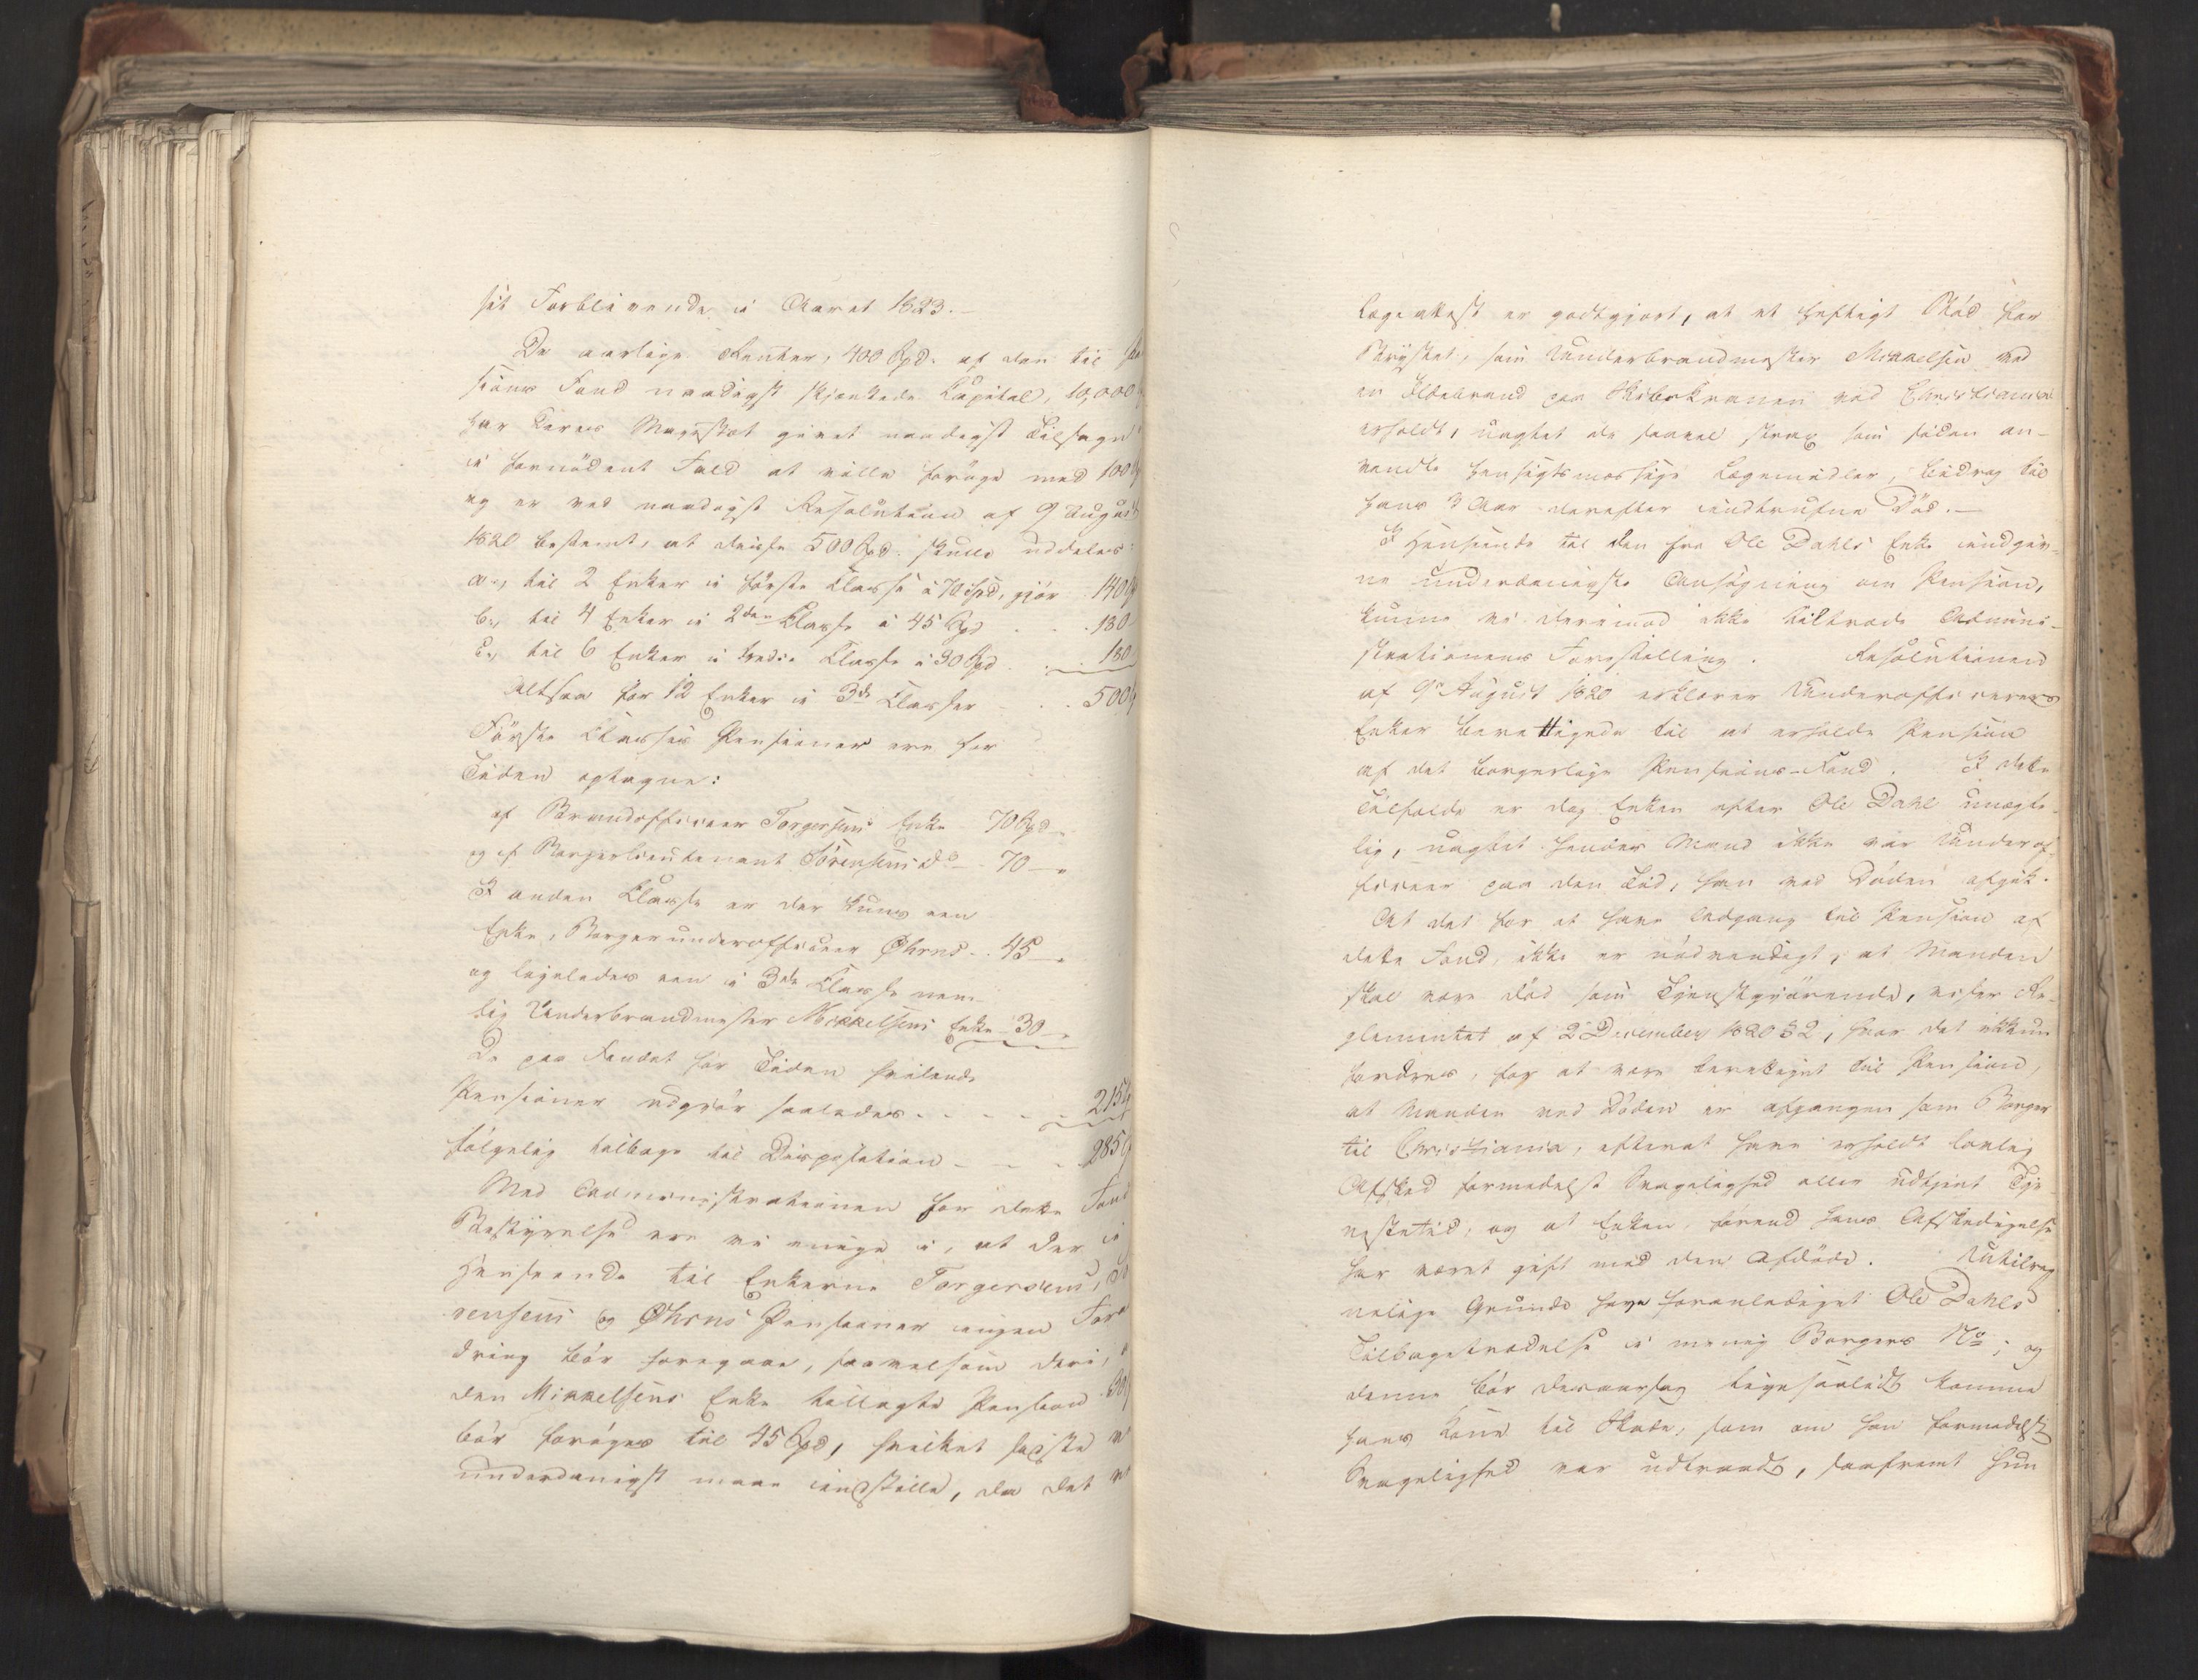 sit Forblivende i Aaret 1823.-
De aarlige Renter, 400 Spd. af den til
sions Fond naadigst skjænkede Capital, 10,000
har Deres Majestæt givet naadigst Tilsagn
i fornödent Fald at ville foröge med 100
og er ved naadigst Resolution af 9 August
1820 bestemt, at disse 500 Spd. skulle uddeles:
a., til 2 Enker i förste Classe à 70 Spd, gjör 140
b., til 4 Enker i 2den Classe à 45 Spd . . . 180
c., til 6 Enker i tredie Classe à 30 Spd . . . 180
Altsaa for 12 Enker i 3de Classer - . . 500
Förste Classes Pensioner ere for
Tiden optagne:
af Brandofficeer Torgersens Enke - 70 Spd
og af Borgerlieutenant Sörensens do - 70 -
I anden Classe er der kuns een
Enke, Borgerunderofficeer Öhrns . . 45 -
og ligeledes een i 3de Classe nem-
lig Underbrandmester Mikkelsens Enke - 30 -
De paa Fondet for Tiden hvilende
Pensioner udgjör saaledes . . - - - 215
fölgelig tilbage til Disposition - - - 285
Med Administrationen for dette Fond
Bestyrelse ere vi enige i, at der i
Henseende til Enkerne Torgersens,
rensens og Öhrns Pensioner ingen For
dring bör foregaae, saavelsom deri,
den Mikkelsens Enke tillagte Pension 30
bör foröges til 45 Spd, hvilket sidste
underdanigst maae indstille, da det
Lægeattest er godtgjort, at et heftigt Stöd for
Brystet, som Underbrandmester Mikkelsen ved
en Ildebrand paa Skibskranen ved Christiania
erholdt, uagtet de saavel strax som siden an-
vendte hensigtsmæssige Lægemidler, bidrog til
hans 3 Aar derefter indtrufne Död.-
I Henseende til den fra Ole Dahls Enke indgiv-
ne underdanigste Ansögning om Pension,
kunne vi derimod ikke tiltræde Admini-
strationens Forestilling. Resolutionen
af 9de August 1820 erklærer Underofficerers
Enker berettigede til at erholde Pension
af det borgerlige Pensions-Fond. I dette
Tilfælde er dog Enken efter Ole Dahl unægte-
lig, uagtet hendes Mand ikke var Underof-
ficeer paa den Tid, han ved Döden afgik.
At det for at have Adgang til Pension af
dette Fond, ikke er nödvendigt, at Manden
skal være död som Tjenstgjörende, viser Re-
glementet af 2 December 1820 § 2, hvor det ikkun
fordres, for at være berettiget til Pension,
at Manden ved Döden er afgangen som Borger
til Christiania, efterat have erholdt lovlig
Afsked formedelst Svagelighed eller udtjent Tje-
nestetid, og at Enken, förend hans Afskedigelse
har været gift med den Afdöde. Utilreg
nelige Grunde have foranlediget Ole Dahls
Tilbagetrædelse i menig Borgers No; og
denne bör desaarsag ligesaalidt komme
hans Kone til Skade, som om han formedelst
Svagelighed var udtraadt, saafremt hun